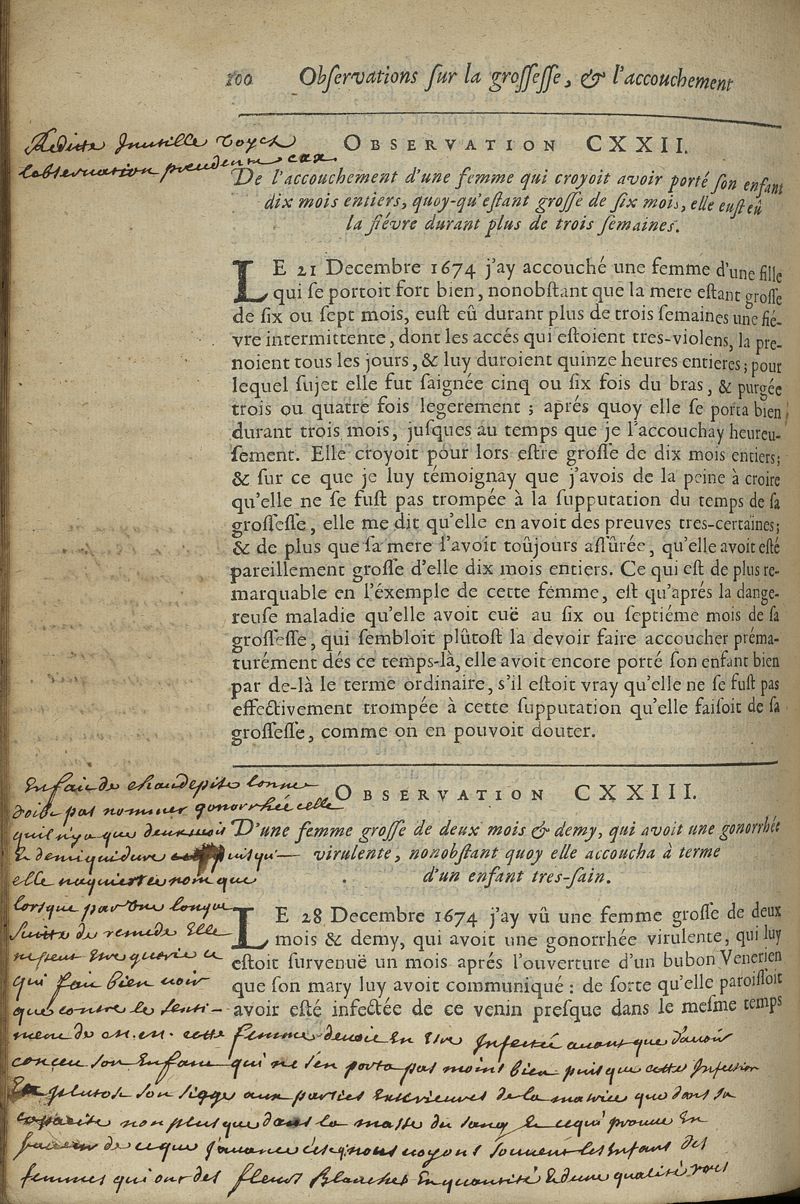 100 Obſervations ſur la groſſeſſe, & l'accouchement
Redite Inutille Voyés
lobservation precedente
OBSERVATION CXXII.
De l'accouchement d'une femme qui croyoit avoir porté ſon enfant
dix mois entiers, quoy-qu'eſtant groſſe de ſix mois, elle euſt eû
la fiévre durant plus de trois ſemaines.
LE 21 Decembre 1674 j'ay accouché une femme d'une fille
qui ſe portoit fort bien, nonobſtant que la mere eſtant groſſe
de ſix ou ſept mois, euſt eû durant plus de trois ſemaines une fié-
vre intermittente, dont les accés qui eſtoient tres-violens, la pre-
noient tous les jours, & luy duroient quinze heures entieres; pour
lequel ſujet elle fut ſaignée cinq ou ſix fois du bras, & purgée
trois ou quatre fois legerement; aprés quoy elle ſe porta bien
durant trois mois, juſques au temps que je l'accouchay heureu-
ſement. Elle croyoit pour lors eſtre groſſe de dix mois entiers;
& ſur ce que je luy témoignay que j'avois de la peine à croire
qu'elle ne ſe fuſt pas trompée à la ſupputation du temps de ſa
groſſeſſe, elle me dit qu'elle en avoit des preuves tres-certaines;
& de plus que ſa mere l'avoit toûjours aſſûrée, qu'elle avoit eſté
pareillement groſſe d'elle dix mois entiers. Ce qui eſt de plus re-
marquable en l'éxemple de cette femme, eſt qu'aprés la dange-
reuſe maladie qu'elle avoit euë au ſix ou ſeptiéme mois de ſa
groſſeſſe, qui ſembloit plûtoſt la devoir faire accoucher préma-
turément dés ce temps-là, elle avoit encore porté ſon enfant bien
par de-là le terme ordinaire, s'il eſtoit vray qu'elle ne ſe fuſt pas
effectivement trompée à cette ſupputation qu'elle faiſoit de ſa
groſſeſſe, comme on en pouvoit douter.
OBSERVATION CXXIII.
D'une femme groſſe de deux mois & demy, qui avoit une gonorrhée
virulente, nonobſtant quoy elle accoucha à terme
d'un enfant tres-ſain.
LE 28 Decembre 1674 j'ay vû une femme groſſe de deux
mois & demy, qui avoit une gonorrhée virulente, qui luy
eſtoit ſurvenuë un mois aprés l'ouverture d'un bubon Venerien
que ſon mary luy avoit communiqué: de ſorte qu'elle paroiſſoit
avoir eſté infectée de ce venin preſque dans le meſme temps
En fait de chaudepisse lonne
doibt pas nommer gonorrhée celle
quil ny a que deux mois
& demi qui dure puisqu'
elle naquiert le nom que
lorsque par une longue
suitte de remede Elle
ne peut estre guerie ce
qui fait bien voir
que contre le senti-
ment de m. m. cette femme devoit En estre Infectée avant que davoir
conceu son Enfant qui ne s'en porta pas moint bien puisque cette Infection
plutost son siege aux parties Exterieures de la matrice que dans sa
non plus que dans la masse du sang & ce qui prouve En
faveur de ce que javance cest q nous voyons souvent les Enfant des
femmes qui ont des fleurs blanches En quantité & dune qualité